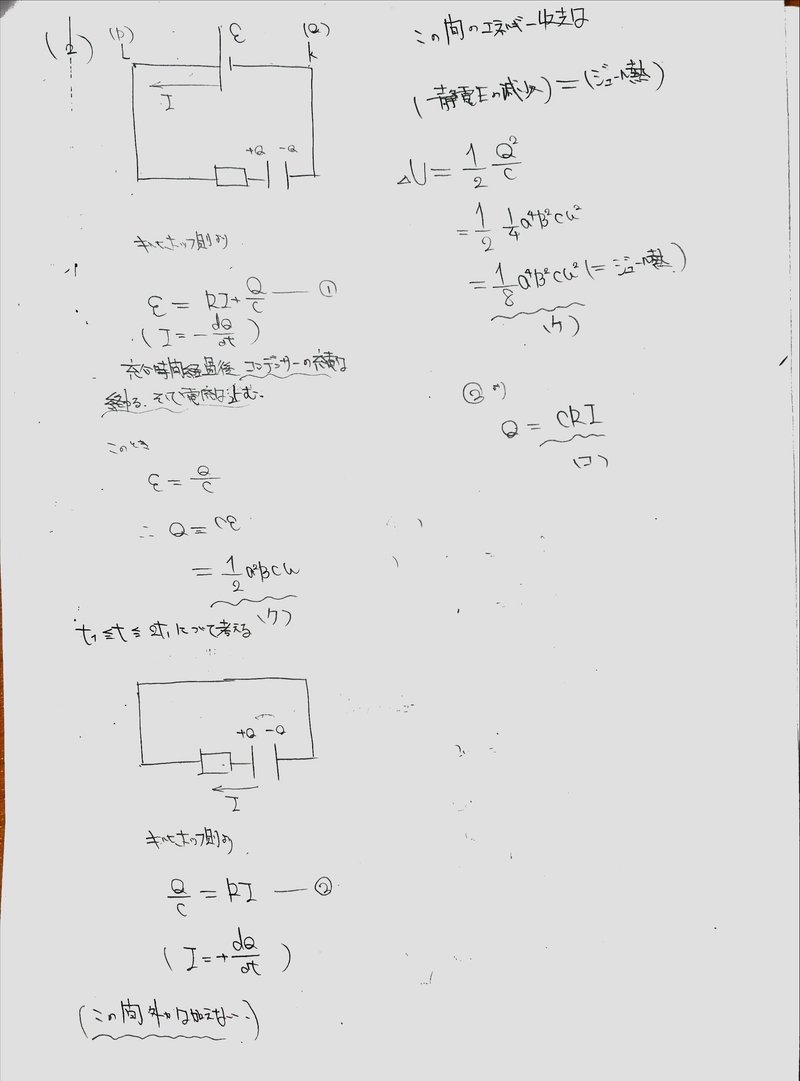 (1/2)
(P)
ε
(Q)
L
k
I
+Q -Q
キルヒホッフ則より
ε = RI + Q/C ― ①
( I = - dQ/dt )
充分時間経過後 コンデンサーの充電は
終わる. そして電流は止む.
このとき
ε = Q/C
∴ Q = Cε
= 1/2 a²BCω
(ク)
t₁ ≦ t ≦ 2t₁ について考える
+Q -Q
I
キルヒホッフ則より
Q/C = RI ― ②
( I = + dQ/dt )
(この間 外力は加えない…)
この間のエネルギー収支は
(静電Eの減少) = (ジュール熱)
△U = 1/2 Q²/C
= 1/2 1/4 a⁴B²Cω²
= 1/8 a⁴B²Cω² (= ジュール熱)
(ケ)
②より
Q = CRI
(コ)